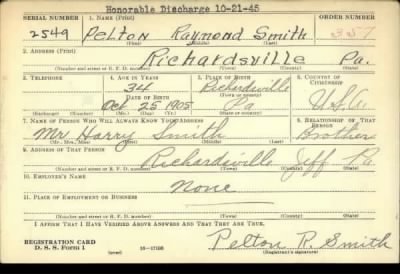 Honorable Discharge 10-21-45
SERIAL NUMBER 1. NAME (Print) ORDER NUMBER
2549 Pelton Raymond Smith 357
(First) (Middle) (Last)
2. ADDRESS (Print)
Richardsville Pa.
(Number and street or R. F. D. number) (Town) (County) (State)
3. TELEPHONE 4. AGE IN YEARS 5. PLACE OF BIRTH 6. COUNTRY OF CITIZENSHIP
34 Richardsville
DATE OF BIRTH (Town or county)
Oct 25 1905 Pa U.S.A.
(Exchange) (Number) (Mo.) (Day) (Yr.) (State or country)
7. NAME OF PERSON WHO WILL ALWAYS KNOW YOUR ADDRESS 8. RELATIONSHIP OF THAT PERSON
Mr Harry Smith Brother
(Mr., Mrs., Miss) (First) (Middle) (Last)
9. ADDRESS OF THAT PERSON
Richardsville Jeff Pa.
(Number and street or R. F. D. number) (Town) (County) (State)
10. EMPLOYER'S NAME
None
11. PLACE OF EMPLOYMENT OR BUSINESS
(Number and street or R. F. D. number) (Town) (County) (State)
I AFFIRM THAT I HAVE VERIFIED ABOVE ANSWERS AND THAT THEY ARE TRUE.
REGISTRATION CARD
D. S. S. Form 1 16-17105 Pelton R. Smith
(Registrant's signature)